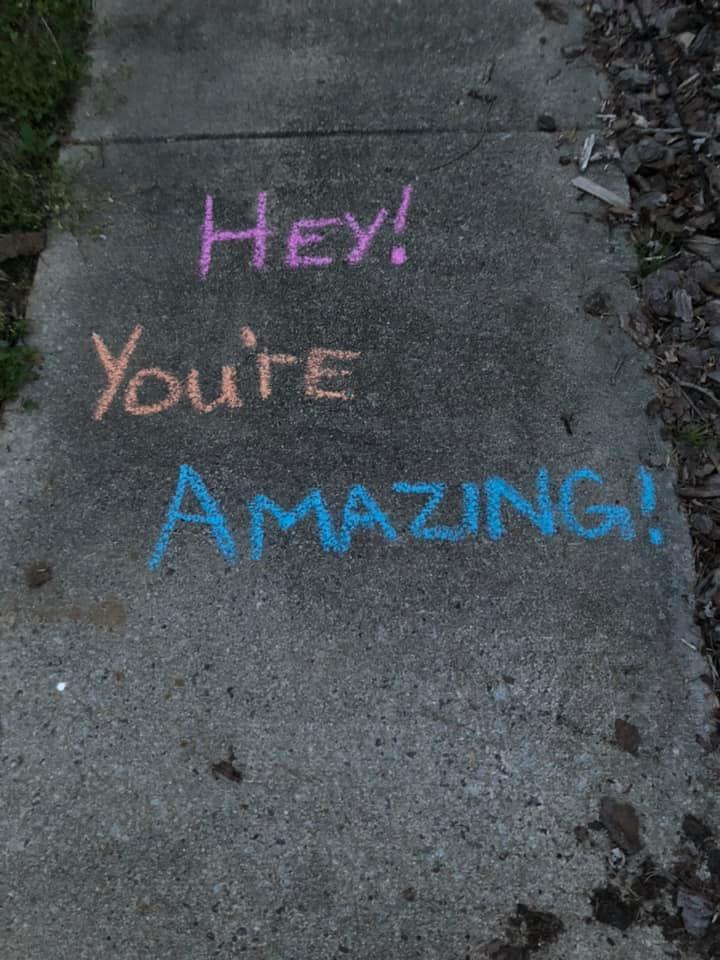 HEY!
You'rE
AMAZING!